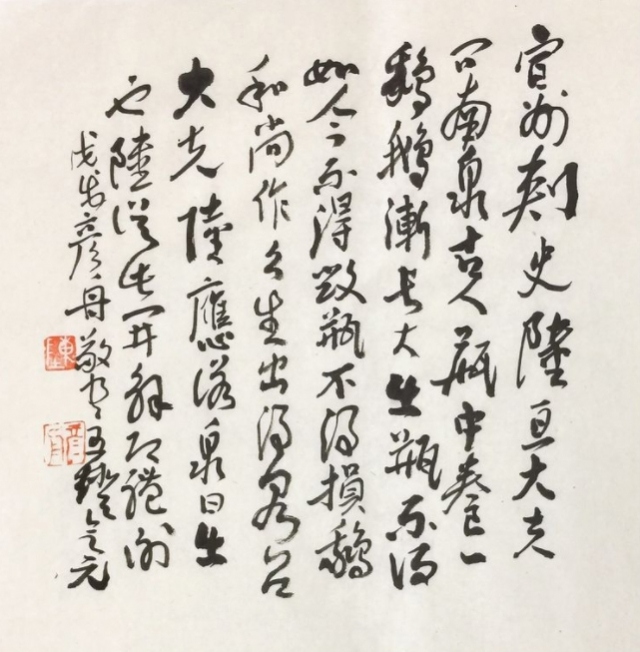 宣州刺史陸亘大夫
問南泉古人瓶中養一
鵝鵝漸長大出瓶不得
如今不得毀瓶不得損鵝
和尚作么生出得泉召
大夫陸應諾泉曰出
也陸從此開解即禮謝
戊戌彥丹敬書五燈會元